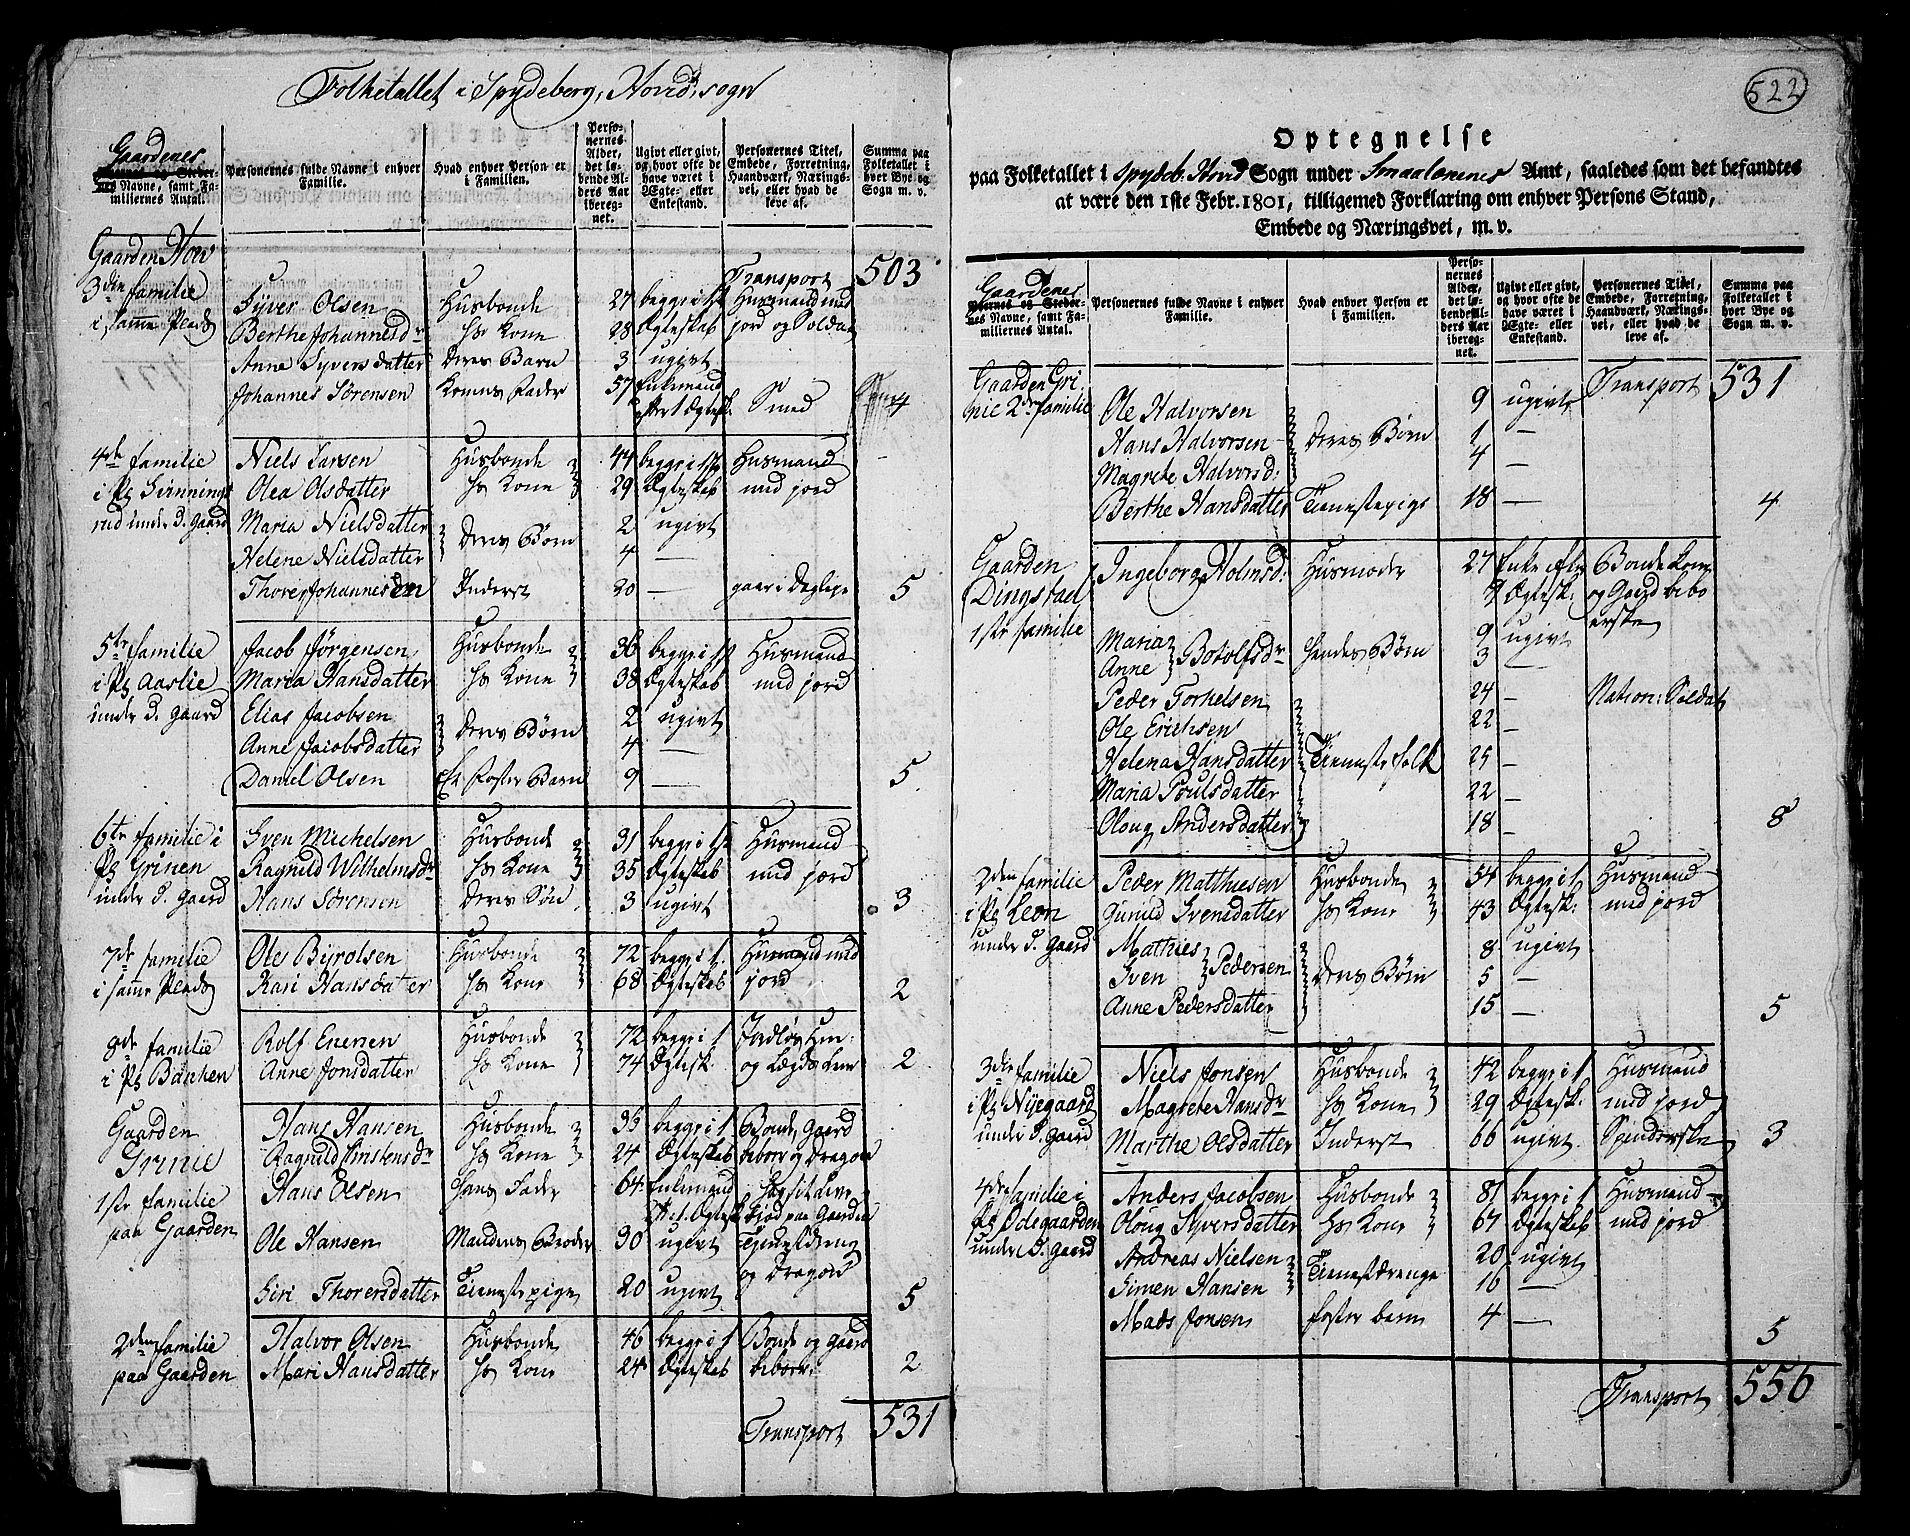 Folketallet i Spydeberg, Hoved-sogn
Gaardenes
Navne, samt Familiernes Antal.
Personernes fulde Navne i enhver Familie.
Hvad enhver Person er i Familien.
Personernes Alder, det løbende Alders Aar iberegnet.
Ugivt eller givt, og hvor ofte de have været i Ægte- eller Enkestand.
Personernes Titel, Embede, Forretning, Haandværk, Næringsvei, eller hvad de leve af.
Summa paa Folketallet i hver Bye og Sogn m. v.
Gaarden Hov
Transport 503
3die familie Syver Olsen Husbonde 27 begge i 1st Huusmand med
i samme Plads Berthe Johannesdr hs Kone 28 Ægteskab jord og Soldat
Anne Syversdatter Deres Barn 3 ugivt
Johannes Sørensen Konens Fader 57 Enkemand
Ægtesk. Smed 4
4de familie Niels Larsen Husbonde 44 begge i 1st Husmand
i Pl. Olea Olsdatter hs Kone 29 Ægteskab med jord
rud under d. Gaard Maria Nielsdatter Deres Børn 2 ugivt
Helene Nielsdatter 4 —
Thore Johannesen Inderst 20 — gaar i Dagleje 5
5te familie Jacob Jørgensen Husbonde 36 begge i 1st Husmand
i Pl. Aaslie Maria Hansdatter hs Kone 38 Ægteskab med jord
under d. gaard Elias Jacobsen Deres Børn 2 ugivt
Anne Jacobsdatter 4 —
Daniel Olsen Et Foster Barn 9 — 5
6te familie i Sven Michelsen Husbonde 31 begge i 1st Husmand
Pl. Grinen Ragnild Wilhelmsdr hs Kone 35 Ægteskab med jord
under d. gaard Hans Sørensen Deres Søn 3 ugivt 3
7de familie Ole Byrolsen Husbonde 72 begge i 1. Husmand med
i samme Plads Kari Hansdatter hs Kone 68 Ægteskab jord 2
8de familie Rolf Enersen Husbonde 72 begge i 1
i Pl. Bakken Anne Jonsdatter hs Kone 74 Ægtesk. og Lægdslem 2
Gaarden Hans Hansen Husbonde 35 begge i 1 Bonde, Gaard
Grinie Ragnild hs Kone 24 Ægteskab beboer og Dragon
1ste familie Hans Olsen Hans Fader 64 Enkemand
paa Gaarden paa Gaarden
Ole Hansen Mandens Broder 30 ugivt Tjenestdreng
og Dragon
Siri Thoresdatter Tienestepige 20 ugivt 5
2den familie Halvor Olsen Husbonde 46 begge i 1 Bonde og gaard
paa Gaarden Mari Hansdatter hs Kone 24 Ægteskab beboer 2
Transport 531
522
Optegnelse
paa Folketallet i Spydeb. Hoved Sogn under Smaalenenes Amt, saaledes som det befandtes
at være den 1ste Febr. 1801, tilligemed Forklaring om enhver Persons Stand,
Embede og Næringsvei, m. v.
Gaardenes
Navne, samt Familiernes Antal.
Personernes fulde Navne i enhver Familie.
Hvad enhver Person er i Familien.
Personernes Alder, det løbende Alders Aar iberegnet.
Ugivt eller givt, og hvor ofte de have været i Ægte- eller Enkestand.
Personernes Titel, Embede, Forretning, Haandværk, Næringsvei, eller hvad de leve af.
Summa paa Folketallet i hver Bye og Sogn m. v.
Gaarden Gri- Transport 531
nie 2den familie Ole Halvorsen 9 ugivt
Hans Halvorsen Deres Børn 1 —
Magrete Halvorsd: 4 —
Berthe Hansdatter Tienestepige 18 — 4
Gaarden Ingeborg Holmsd: Husmoder 27 Enke Bonde Kone
Dingstad Ægtesk: og Gaard bebo
1ste familie erske
Maria Botolfsdr Hendes Børn 9 ugivt
Anne 3 —
Peder Torkelsen 24 — Nation: Soldat
Ole Erichsen 22 —
Helena Hansdatter Tienestefolk 25 —
Maria Poulsdatter 22 —
Oloug Andersdatter 18 — 8
2den familie Peder Matthiesen Husbonde 54 begge i 1 Husmand
i Pl. Leon Gunild Svensdatter hs Kone 43 Ægtesk: med jord
under d. gaard Mathies Pedersen Deres Børn 8 ugivt
Sven 5 —
Anne Pedersdatter 15 — 5
3die familie Niels Jonsen Husbonde 42 begge i 1 Husmand
i Pl. Nyegaard Magrete Hansdr hs Kone 29 Ægtesk: med jord
under d. gaard Marthe Olsdatter Inderst 66 ugivt Spinderske 3
4de familie i Anders Jacobsen Husbonde 81 begge i 1 Husmand
Pl. Ødegaarden Oloug Syversdatter hs Kone 67 Ægteskab med jord
under d. gaard Andreas Nielsen Tienestdrenge 20 ugivt
Simen Hansen 16 —
Mads Jonsen foster barn 4 — 5
Transport 556